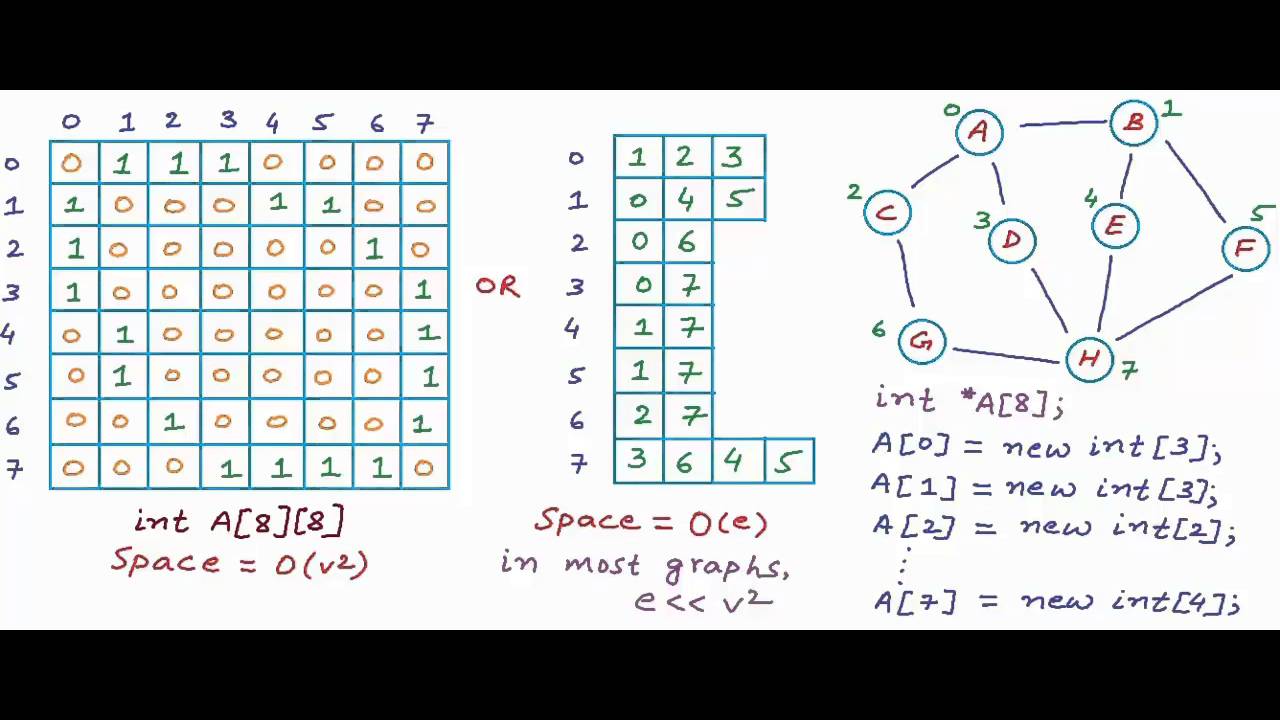 0 1 2 3 4 5 6 7
0 0 1 1 1 0 0 0 0
1 1 0 0 0 1 1 0 0
2 1 0 0 0 0 0 1 0
3 1 0 0 0 0 0 0 1
4 0 1 0 0 0 0 0 1
5 0 1 0 0 0 0 0 1
6 0 0 1 0 0 0 0 1
7 0 0 0 1 1 1 1 0
int A[8][8]
Space = O(v²)
OR
0 1 2 3
1 0 4 5
2 0 6
3 0 7
4 1 7
5 1 7
6 2 7
7 3 6 4 5
Space = O(e)
in most graphs,
e << v²
0 A
B 1
2 C
3 D
4 E
5 F
6 G
H 7
int *A[8];
A[0] = new int[3];
A[1] = new int[3];
A[2] = new int[2];
⋮
A[7] = new int[4];